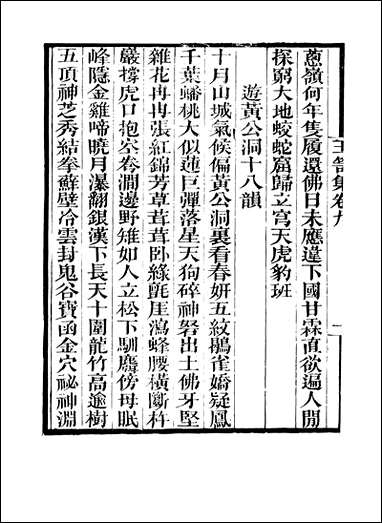 蔥嶺何年隻履還佛日未應違下國甘霖直欲遍人間
探窮大地蛟蛇窟歸立寫天虎豹班
遊黃公洞十八韻
十月山城氣候偏黃公洞裏看春妍五紋鶡雀嬌疑鳳
千葉蟠桃大似蓮巨彈落星天狗碎神弩出土佛牙堅
雜花冉冉張紅錦芳草茸茸臥綠氈厓瀉蜂腰橫斷杵
巖撐虎口抱空桊澗邊野雉如人立松下馴麕傍母眠
峰隱金雞啼曉月瀑翻銀漢下長天十圍龍竹高逾樹
五頂神芝秀結拳蘇壁冷雲封鬼谷寶函金穴祕神淵
集卷九
一